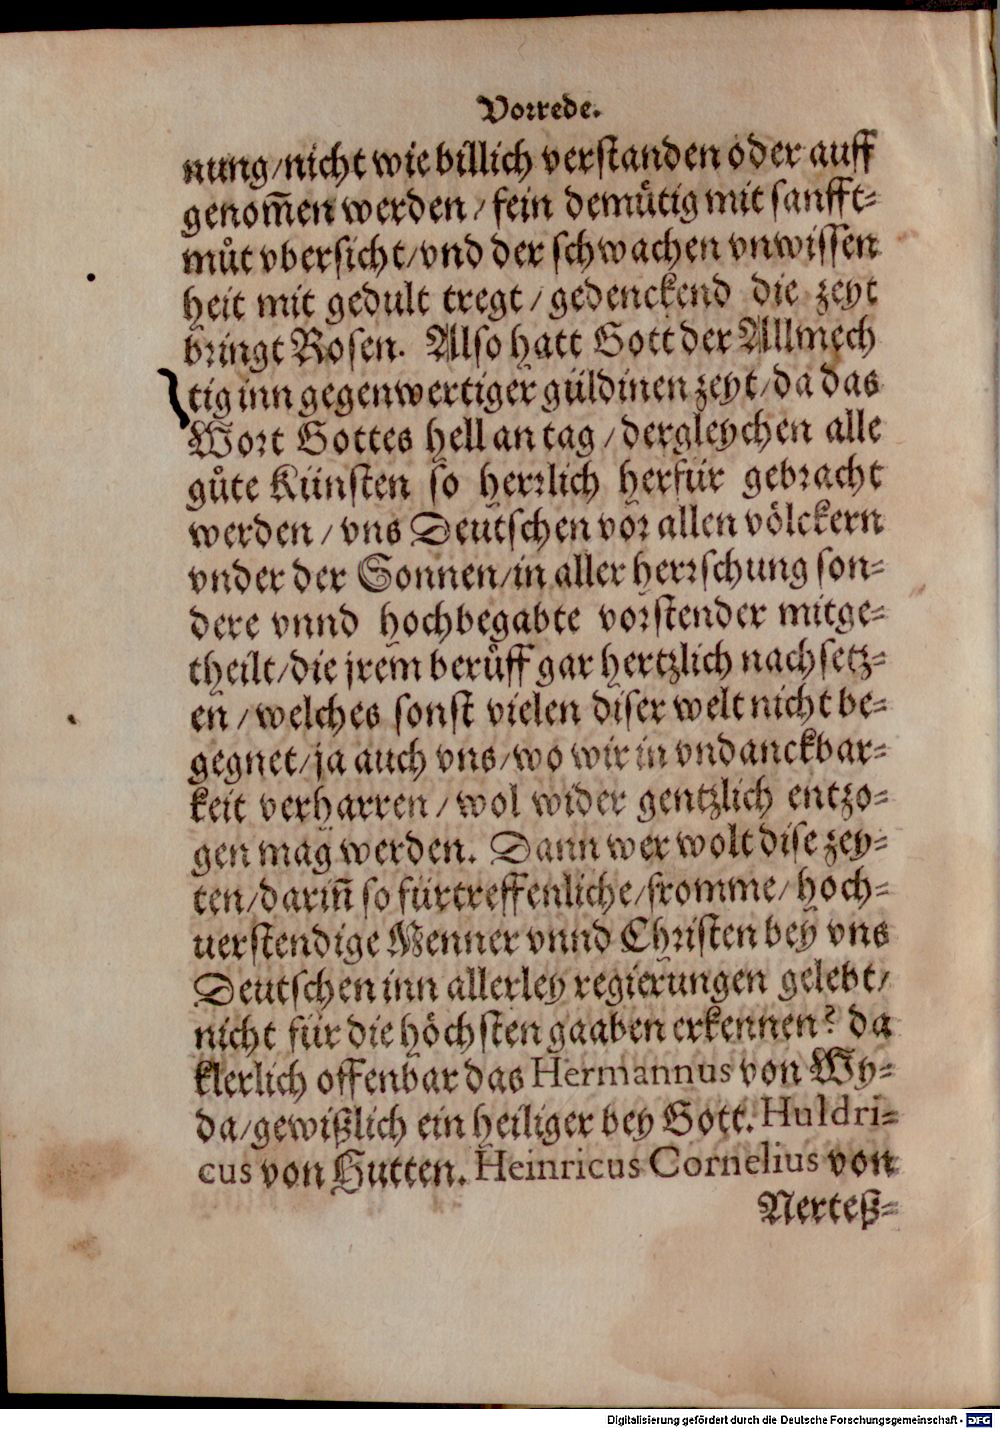 Vorrede.
nung/nicht wie billich verstanden oder auff
genom̃en werden/ fein demuͤtig mit sanfft-
muͦt vbersicht/vnd der schwachen vnwissen
heit mit gedult tregt/gedenckend die zeyt
bringt Rosen. Also hatt Gott der Allmech
tig inn gegenwertiger güldinen zeyt/da das
Wort Gottes hell an tag/dergleychen alle
guͦte Künsten so herrlich herfür gebracht
werden/ vns Deutschen vor allen voͤlckern
vnder der Sonnen/in aller herrschung son-
dere vnnd hochbegabte vorstender mitge-
theilt/die jrem beruͤff gar hertzlich nachsetz-
en/welches sonst vielen diser welt nicht be-
gegnet/ja auch vns/wo wir in vndanckbar-
keit verharren/wol wider gentzlich entzo-
gen mag werden. Dann wer wolt dise zey-
ten/darin̄ so fürtreffenliche/fromme/hoch-
uerstendige Menner vnnd Christen bey vns
Deutschen inn allerley regierungen gelebt/
nicht für die hoͤchsten gaaben erkennen? da
klerlich offenbar das Hermannus von Wy-
da/gewißlich ein heiliger bey Gott. Huldri-
cus von Hutten. Heinricus Cornelius von
Nerteß-
Digitalisierung gefördert durch die Deutsche Forschungsgemeinschaft - DFG